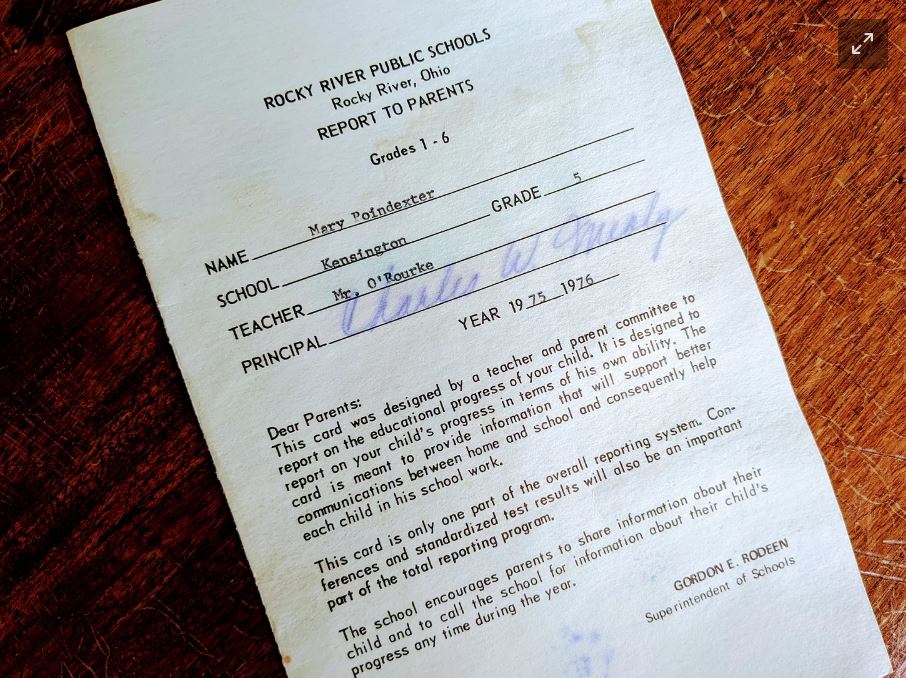 ROCKY RIVER PUBLIC SCHOOLS
Rocky River, Ohio
REPORT TO PARENTS
Grades 1 - 6
NAME Mary Poindexter
SCHOOL Kensington GRADE 5
TEACHER Mr. O'Rourke
PRINCIPAL Charles W
YEAR 19 75 1976
Dear Parents:
This card was designed by a teacher and parent committee to
report on the educational progress of your child. It is designed to
report on your child's progress in terms of his own ability. The
card is meant to provide information that will support better
communications between home and school and consequently help
each child in his school work.
This card is only one part of the overall reporting system. Con-
ferences and standardized test results will also be an important
part of the total reporting program.
The school encourages parents to share information about their
child and to call the school for information about their child's
progress any time during the year.
GORDON E. RODEEN
Superintendent of Schools